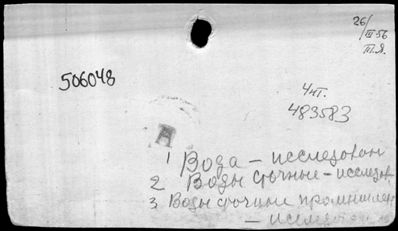 26/
III-56
П.Я.
506048
Чит.
483583
А
1 Вода - исследован
2 Воды сточные - исследов
3 Воды сточные промышлен
- исследован